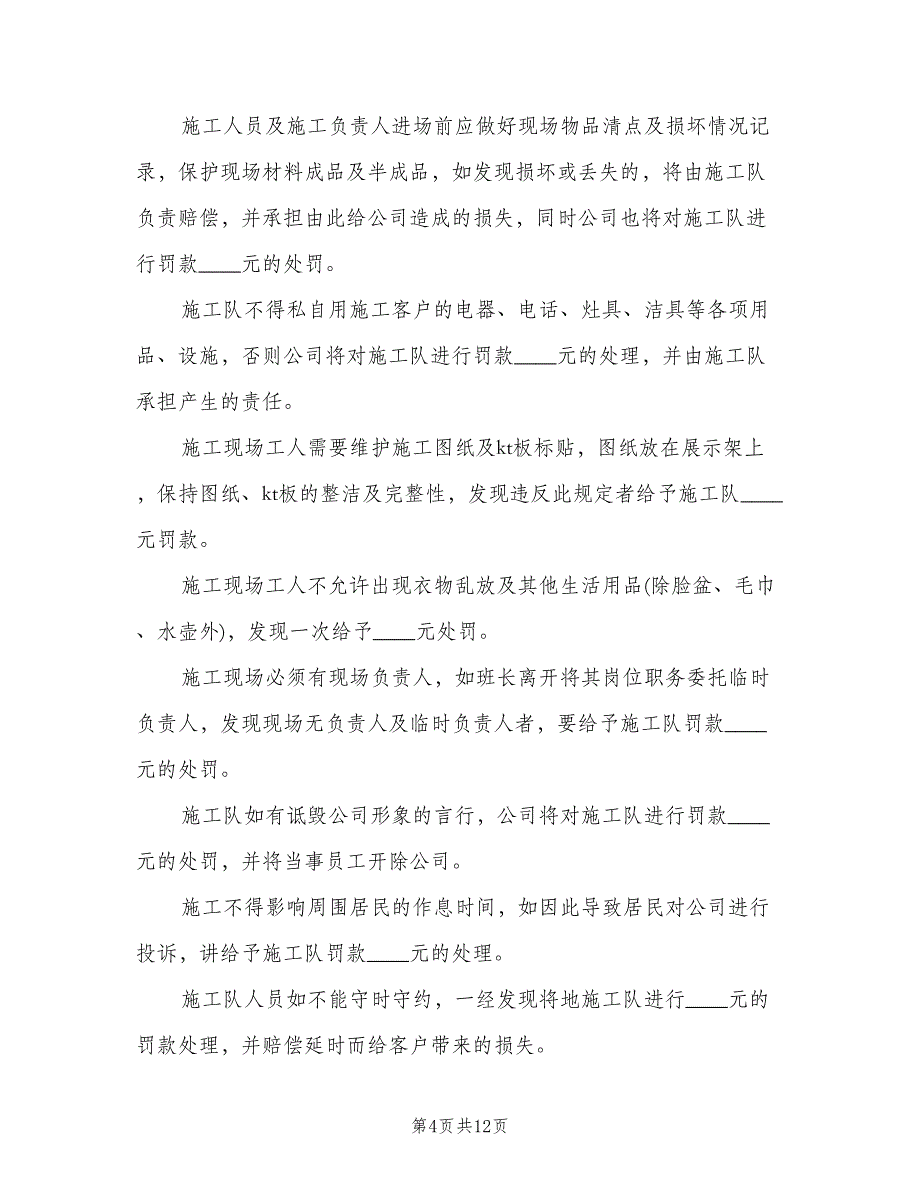 施工人员及施工负责人进场前应做好现场物品清点及损坏情况记
录，保护现场材料成品及半成品，如发现损坏或丢失的，将由施工队
负责赔偿，并承担由此给公司造成的损失，同时公司也将对施工队进
行罚款____元的处罚。
施工队不得私自用施工客户的电器、电话、灶具、洁具等各项用
品、设施，否则公司将对施工队进行罚款____元的处理，并由施工队
承担产生的责任。
施工现场工人需要维护施工图纸及kt板标贴，图纸放在展示架上
，保持图纸、kt板的整洁及完整性，发现违反此规定者给予施工队____
元罚款。
施工现场工人不允许出现衣物乱放及其他生活用品(除脸盆、毛巾
、水壶外)，发现一次给予____元处罚。
施工现场必须有现场负责人，如班长离开将其岗位职务委托临时
负责人，发现现场无负责人及临时负责人者，要给予施工队罚款____
元的处罚。
施工队如有诋毁公司形象的言行，公司将对施工队进行罚款____
元的处罚，并将当事员工开除公司。
施工不得影响周围居民的作息时间，如因此导致居民对公司进行
投诉，讲给予施工队罚款____元的处理。
施工队人员如不能守时守约，一经发现将地施工队进行____元的
罚款处理，并赔偿延时而给客户带来的损失。
第4页共12页